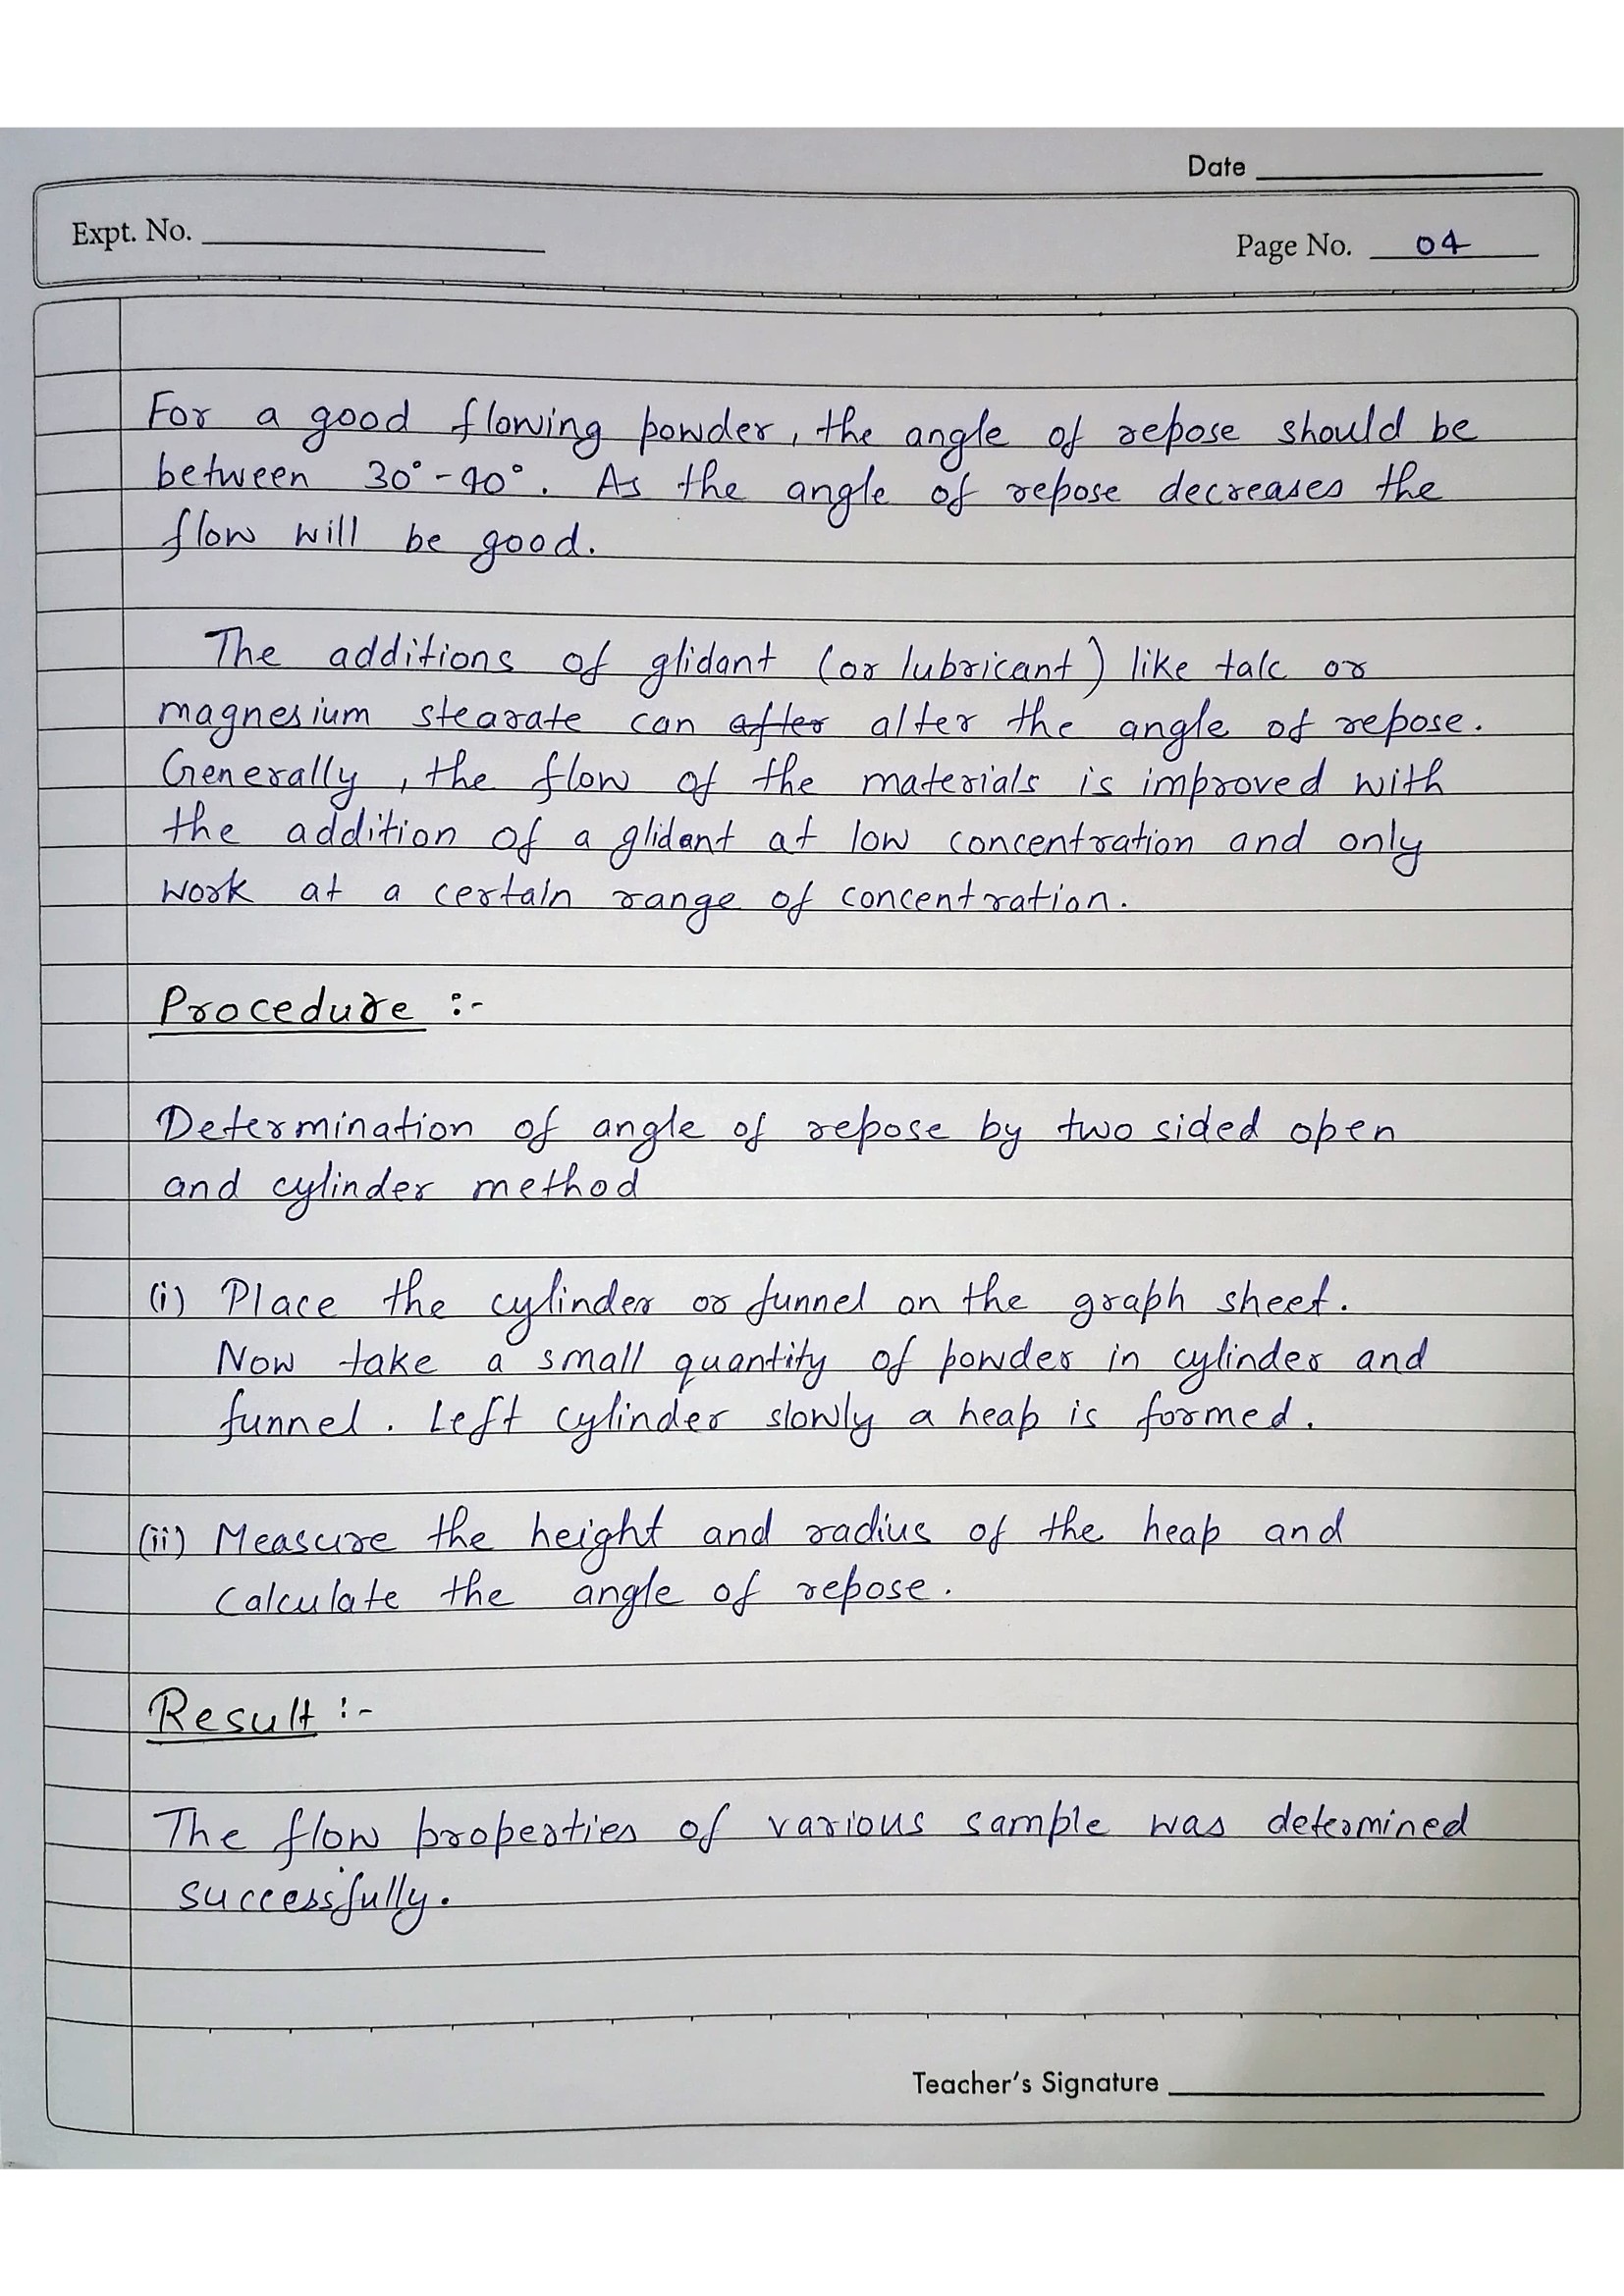 Date
Expt. No.
Page No. 04
For a good flowing powder, the angle of repose should be
between 30°-40°. As the angle of repose decreases the
flow will be good.
The additions of glidant (or lubricant) like talc or
magnesium stearate can after alter the angle of repose.
Generally, the flow of the materials is improved with
the addition of a glidant at low concentration and only
work at a certain range of concentration.
Procedure :-
Determination of angle of repose by two sided open
and cylinder method
(i) Place the cylinder or funnel on the graph sheet.
Now take a small quantity of powder in cylinder and
funnel. Left cylinder slowly a heap is formed.
(ii) Measure the height and radius of the heap and
calculate the angle of repose.
Result :-
The flow properties of various sample was determined
successfully.
Teacher's Signature